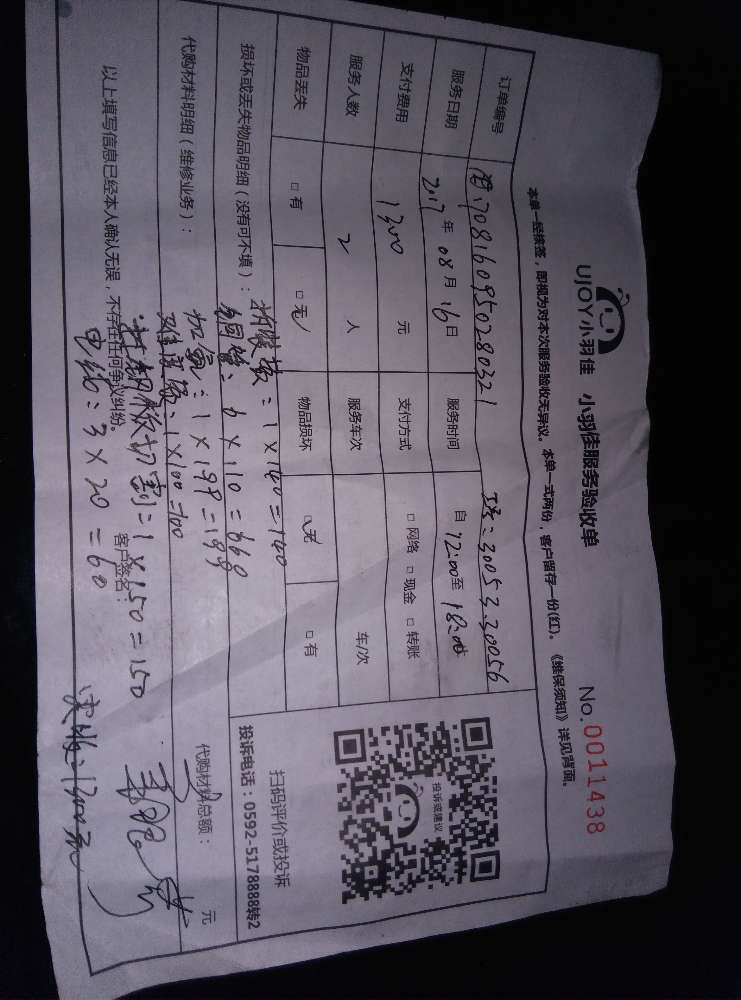 UJOY小羽佳 小羽佳服务验收单
No.0011438
本单一经接签，即视为对本次服务验收无异议。本单一式两份，客户留存一份(红)。《维保须知》详见背面。
订单编号 708160950280321 30053.30056
服务日期 2017年08月16日 服务时间 自12:00至18:00
支付费用 1300元 支付方式 □网络 □现金 □转账
服务人数 2人 服务车次 车/次
物品丢失 □有 □无 物品损坏 □无 □有
损坏或丢失物品明细（没有可不填）：
拆装费：1×140=140
铜管：6×110=660
代购材料明细（维修业务）：
加氟：1×199=199
1×100=100
切割：1×150=150
电缆：3×20=60
代购材料总额： 元
以上填写信息已经本人确认无误，不存在任何争议纠纷。
客户签名：
实收：1300元
投诉或建议
扫码评价或投诉
投诉电话：0592-5178888转2